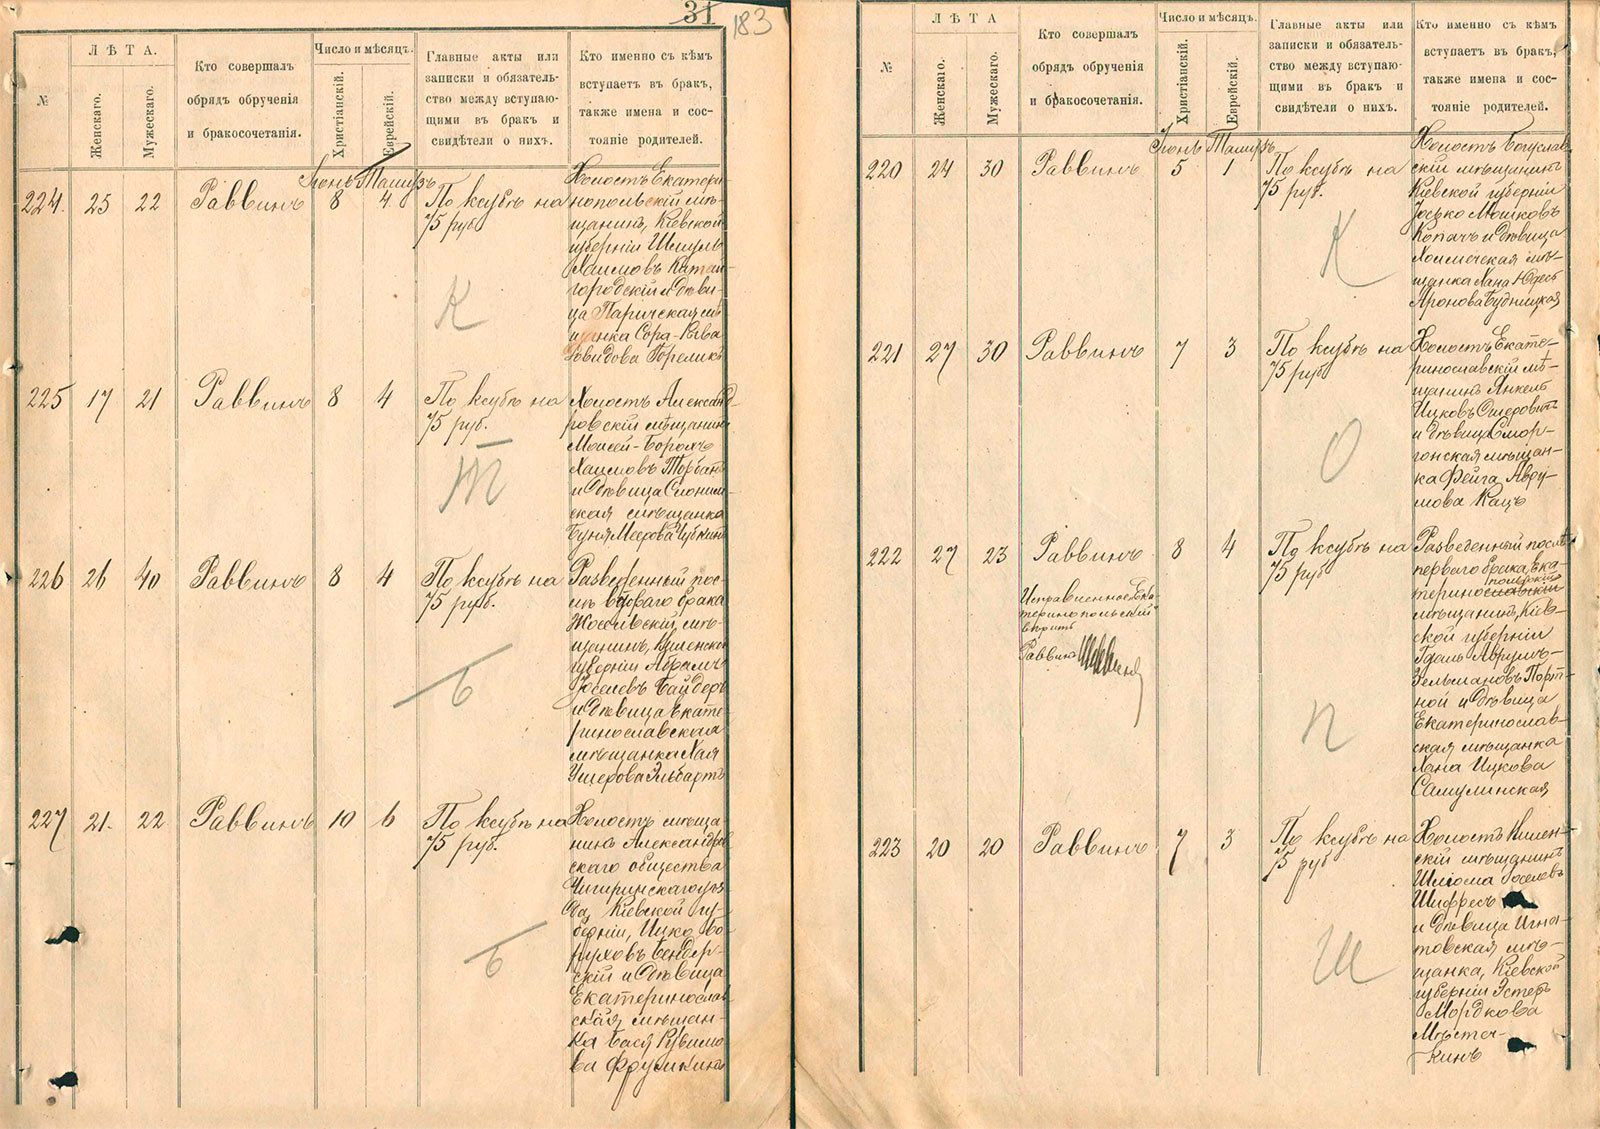 31
183
№
ЛѢТА.
Женскаго.
Мужескаго.
Кто совершалъ
обрядъ обрученія
и бракосочетанія.
Число и мѣсяцъ.
Христіанскій.
Еврейскій.
Главные акты или
записки и обязатель-
ство между вступаю-
щими въ бракъ и
свидѣтели о нихъ.
Кто именно съ кѣмъ
вступаетъ въ бракъ,
также имена и сос-
тояніе родителей.
Іюнь Тамузъ
224. 25 22 Раввинъ 8 4 По ксубѣ на
75 руб.
К
Холостъ Екатери-
нопольскій мѣ-
щанинъ, Кіевской
губерніи Шмуль
Хаимовъ Катаи-
городскій и дѣви-
ца Паричская мѣ-
щанка Сора-Рыва
Довидова Гореликъ
225 17 21 Раввинъ 8 4 По ксубѣ на
75 руб.
Т
Холостъ Александ-
ровскій мѣщанинъ
Моисей-Борохъ
Хаимовъ Торбанъ
и дѣвица Слоним-
ская мѣщанка
Буня Меерова Чубкинъ
226 26 40 Раввинъ 8 4 По ксубѣ на
75 руб.
Б
Разведенный пос-
лѣ втораго брака
мѣ-
щанинъ, Виленской
губерніи Абрамъ
Іоселевъ Байдеръ
и дѣвица Екате-
ринославская
мѣщанка Хая
Ушерова Эльбартъ
227 21. 22 Раввинъ 10 6 По ксубѣ на
75 руб.
Б
Холостъ мѣща-
нинъ Александров-
скаго общества
Чигиринскаго уѣз-
да, Кіевской гу-
берніи, Ицко Бо-
руховъ Бендер-
скій и дѣвица
Екатеринослав-
ская мѣщан-
ка Бася Рувимо-
ва Фрумкина
№
ЛѢТА
Женскаго.
Мужескаго.
Кто совершалъ
обрядъ обрученія
и бракосочетанія.
Число и мѣсяцъ.
Христіанскій.
Еврейскій.
Главные акты или
записки и обязатель-
ство между вступаю-
щими въ бракъ и
свидѣтели о нихъ.
Кто именно съ кѣмъ
вступаетъ въ бракъ,
также имена и сос-
тояніе родителей.
Іюнь Тамузъ
220 24 30 Раввинъ 5 1 По ксубѣ на
75 руб.
К
Холостъ Богуслав-
скій мѣщанинъ
Кіевской губерніи
Іосько Мошковъ
Копачъ и дѣвица
Холмечская мѣ-
щанка Хана Юдесъ
Аронова Будницкая
221 27 30 Раввинъ 7 3 По ксубѣ на
75 руб.
О
Холостъ Екате-
ринославскій мѣ-
щанинъ Янкель
Ицковъ Ошеровичъ
и дѣвица Смор-
гонская мѣщан-
ка Фейга Авру-
мова Кацъ
222 27 23 Раввинъ 8 4 По ксубѣ на
75 руб.
Исправленное „Ека-
теринопольскій“
вѣрить
Раввинъ
П
Разведенный послѣ
перваго брака, Ека-
польскій
теринославскій
мѣщанинъ, Кіев-
ской губерніи
Гдаль Аврумъ-
Зельмановъ Порт-
ной и дѣвица
Екатеринослав-
ская мѣщанка
Хана Ицкова
Самулинская
223 20 20 Раввинъ 7 3 По ксубѣ на
75 руб
Ш
Холостъ Вилен-
скій мѣщанинъ
Шліома Іоселевъ
Шифресъ
и дѣвица Игна-
товская мѣ-
щанка, Кіевской
губерніи Эстеръ
Мордкова
Мѣстеч-
кинъ